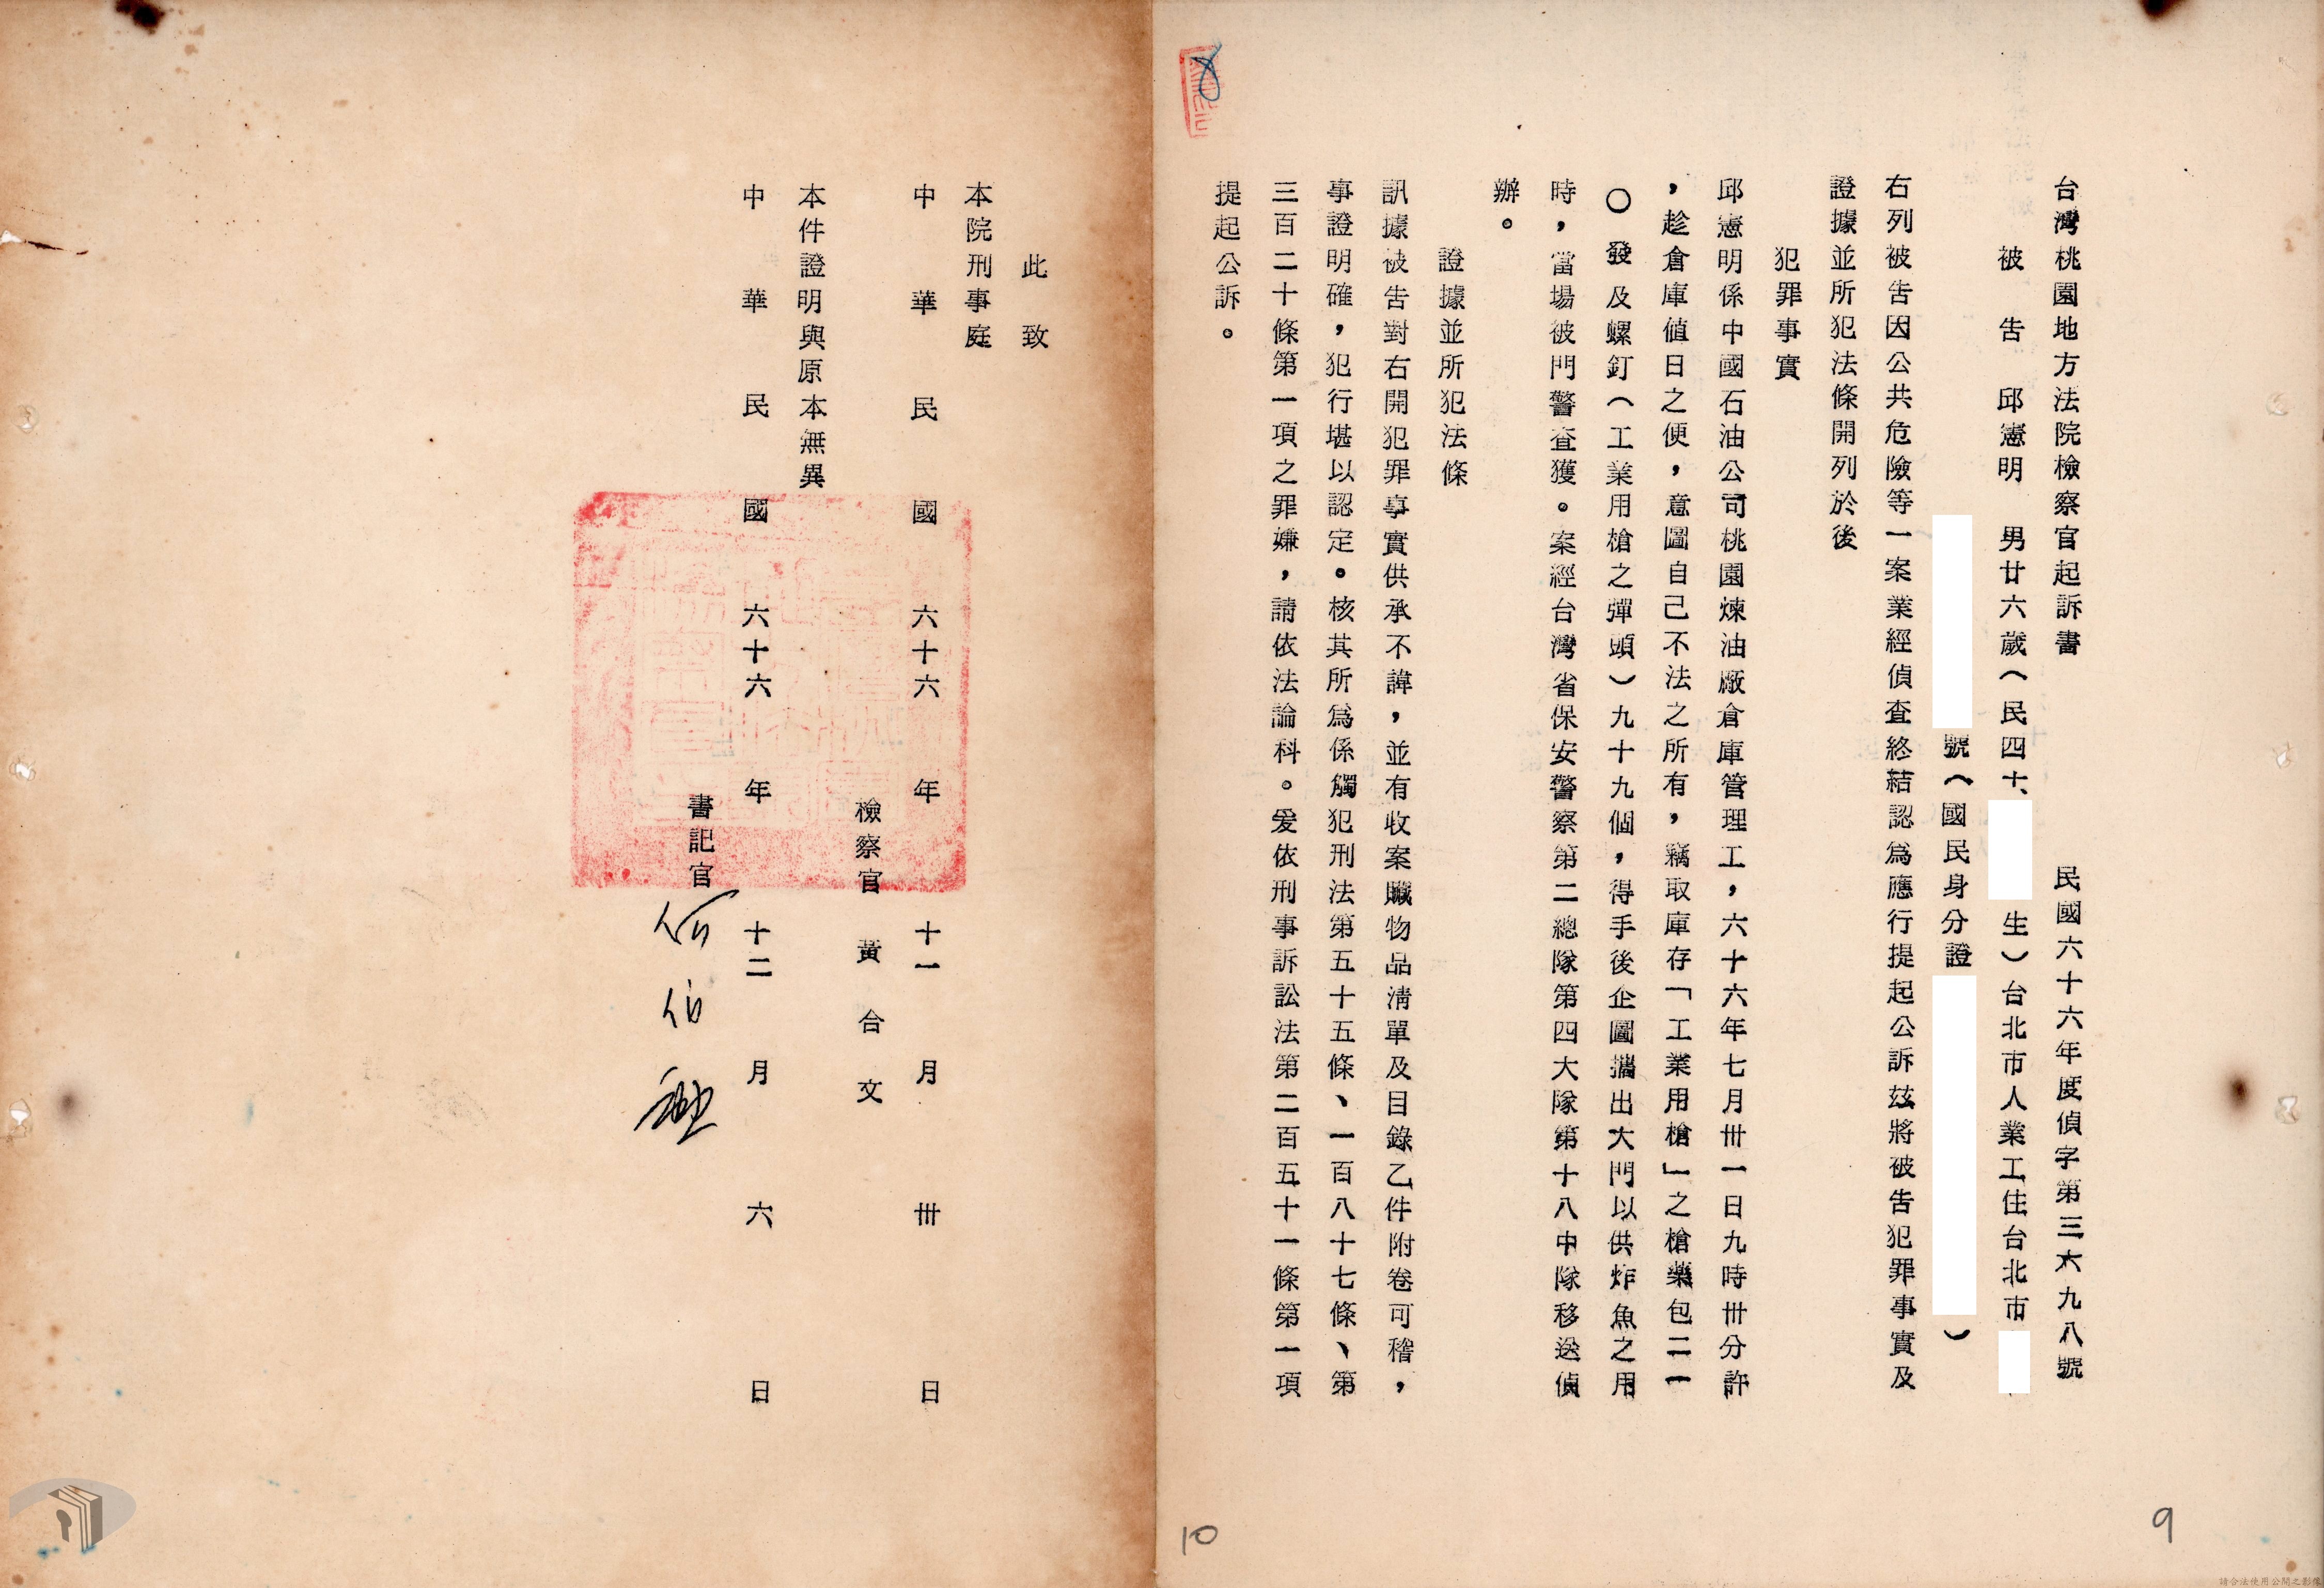 台灣桃園地方法院檢察官起訴書　民國六十六年度偵字第三六九八號
被告　邱憲明　男廿六歲（民四十、生）台北市人業工住台北市
號（國民身分證　）
右列被告因公共危險等一案業經偵查終結認為應行提起公訴茲將被告犯罪事實及
證據並所犯法條開列於後
犯罪事實
邱憲明係中國石油公司桃園煉油廠倉庫管理工，六十六年七月卅一日九時卅分許
，趁倉庫值日之便，意圖自己不法之所有，竊取庫存「工業用槍」之槍藥包二一
〇發及螺釘（工業用槍之彈頭）九十九個，得手後企圖攜出大門以供炸魚之用
時，當場被門警查獲。案經台灣省保安警察第二總隊第四大隊第十八中隊移送偵
辦。
證據並所犯法條
訊據被告對右開犯罪事實供承不諱，並有收案贓物品清單及目錄乙件附卷可稽，
事證明確，犯行堪以認定。核其所為係觸犯刑法第五十五條、一百八十七條、第
三百二十條第一項之罪嫌，請依法論科。爰依刑事訴訟法第二百五十一條第一項
提起公訴。
此致
本院刑事庭
中華民國六十六年十一月卅日
檢察官　黃合文
本件證明與原本無異
中華民國六十六年十二月六日
書記官　何伯
9
10
請合法使用公開之影像